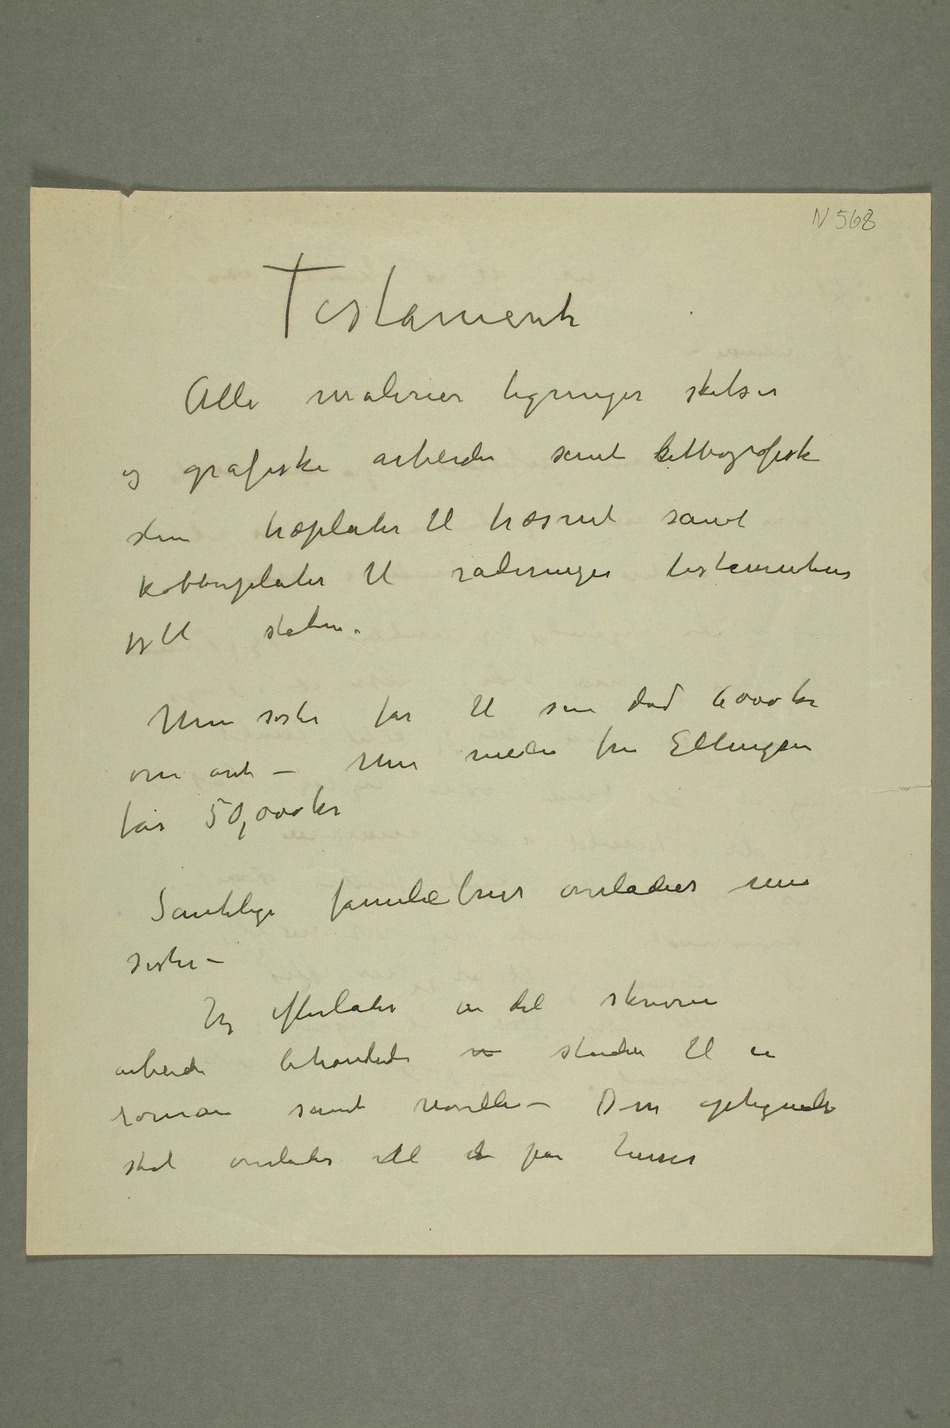 N 568
Testament
Alle malerier tegninger skitser
og grafiske arbeider samt littografisk
sten træplater til træsnit samt
kobberplater til raderinger testamenteres
jeg til staten.
Min søster får til sin død 6000 kr
om året – Min niece fru Ellingsen
får 50,000 kr
Samtlige familiebrever overlades min
søster –
Jeg efterlader en del skrevne
arbeider behandlede studier til en
roman samt noveller – Disse optegnelser
skal overlades til et par